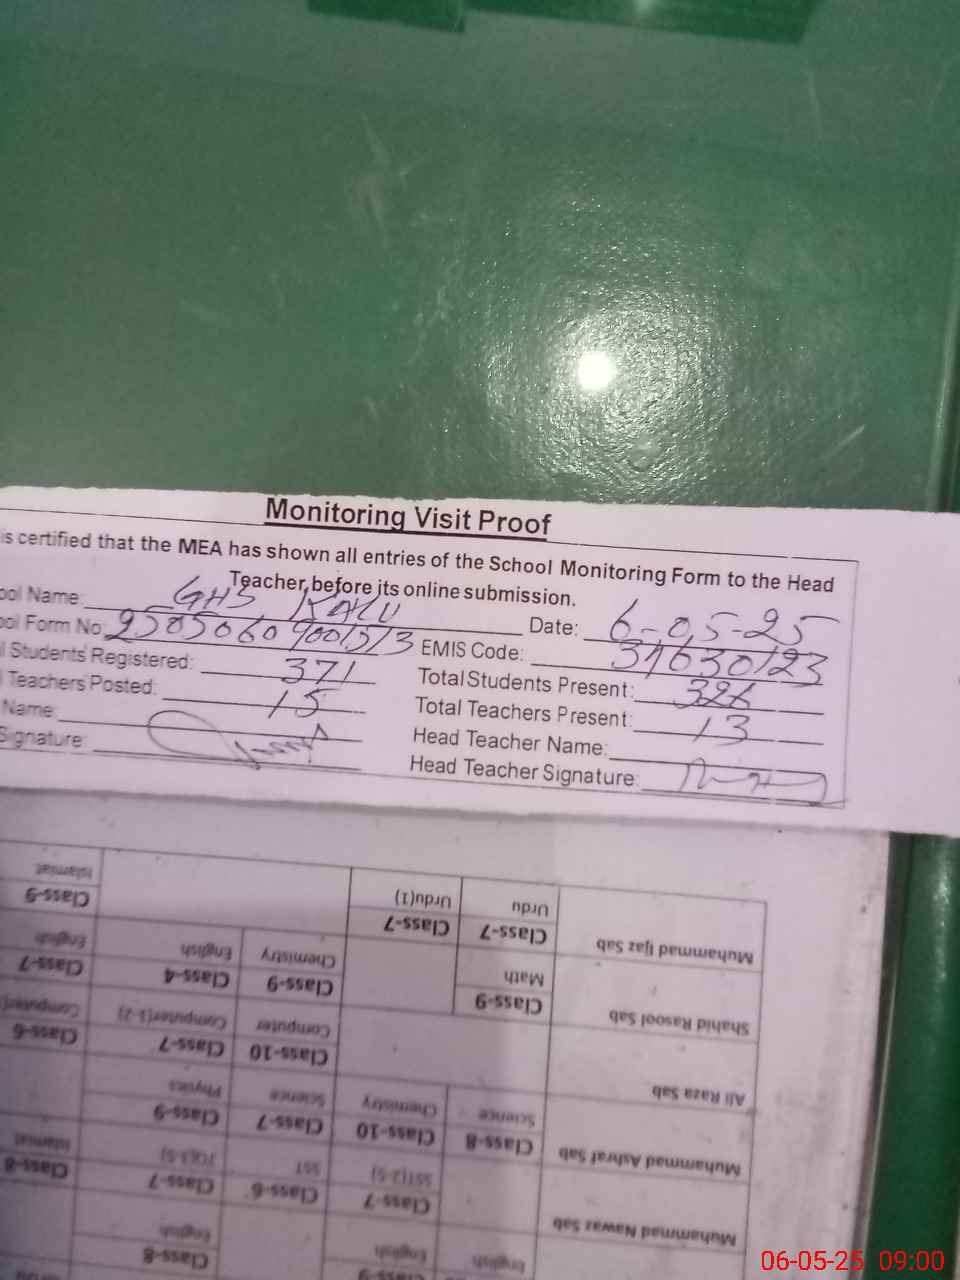 Monitoring Visit Proof
is certified that the MEA has shown all entries of the School Monitoring Form to the Head
Teacher, before its online submission.
ool Name: GHS KALU Date: 6-05-25
ool Form No: EMIS Code:
l Students Registered: 371 Total Students Present: 326
l Teachers Posted: 15 Total Teachers Present: 13
Name: Head Teacher Name:
Signature: Head Teacher Signature:
Muhammad Ijaz Sab Class-7 Urdu Class-7 Urdu(1) Class-9 Islamiat
Shahid Rasool Sab Class-9 Math Class-9 Chemistry Class-4 English Class-7 English
Ali Raza Sab Class-10 Computer Class-7 Computer(1-2) Class-6 Computer
Muhammad Ashraf Sab Class-8 Science Class-10 Chemistry Class-7 Science Class-9 Physics
Muhammad Nawaz Sab Class-7 SST(2-5) Class-6 SST Class-7 Class-8 Islamiat
English English Class-9 Class-8 English
06-05-25 09:00